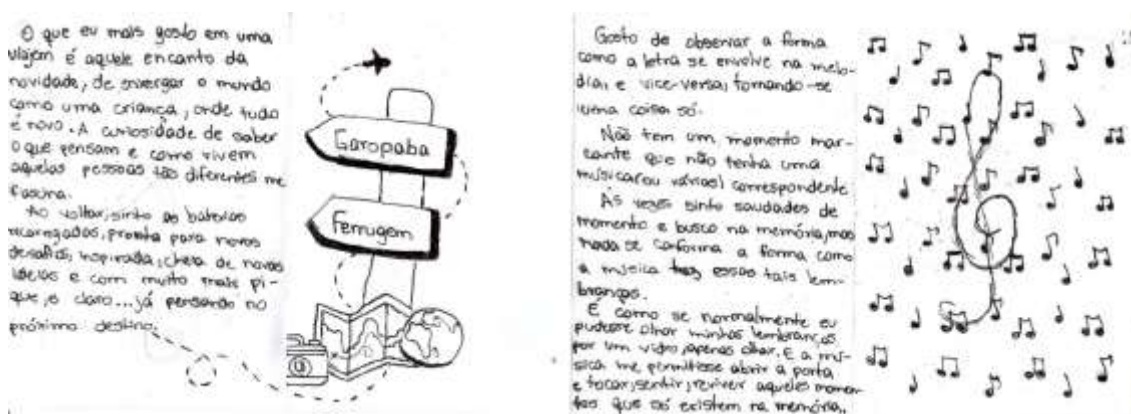 O que eu mais gosto em uma
viajem é aquele encanto da
novidade, de enxergar o mundo
como uma criança, onde tudo
é novo. A curiosidade de saber
o que pensam e como vivem
aquelas pessoas tão diferentes me
fascina.
Ao voltar, sinto as baterias
recarregadas, pronta para novos
desafios, inspirada, cheia de novas
ideias e com muito mais pi-
que, e claro... já pensando no
próximo destino.
Garopaba
Ferrugem
Gosto de observar a forma
como a letra se envolve na melo-
dia, e vice-versa, tornando-se
uma coisa só.
Não tem um momento mar-
cante que não tenha uma
música (ou várias) correspondente
Às vezes sinto saudades de
momento e busco na memória, mas
nada se conforma a forma como
a música traz essas tais lem-
branças.
É como se normalmente eu
pudesse olhar minhas lembranças
por um vidro, apenas olhar. E a mú-
sica me permitisse abrir a porta
e tocar, sentir, reviver aqueles momen-
tos que só existem na memória.